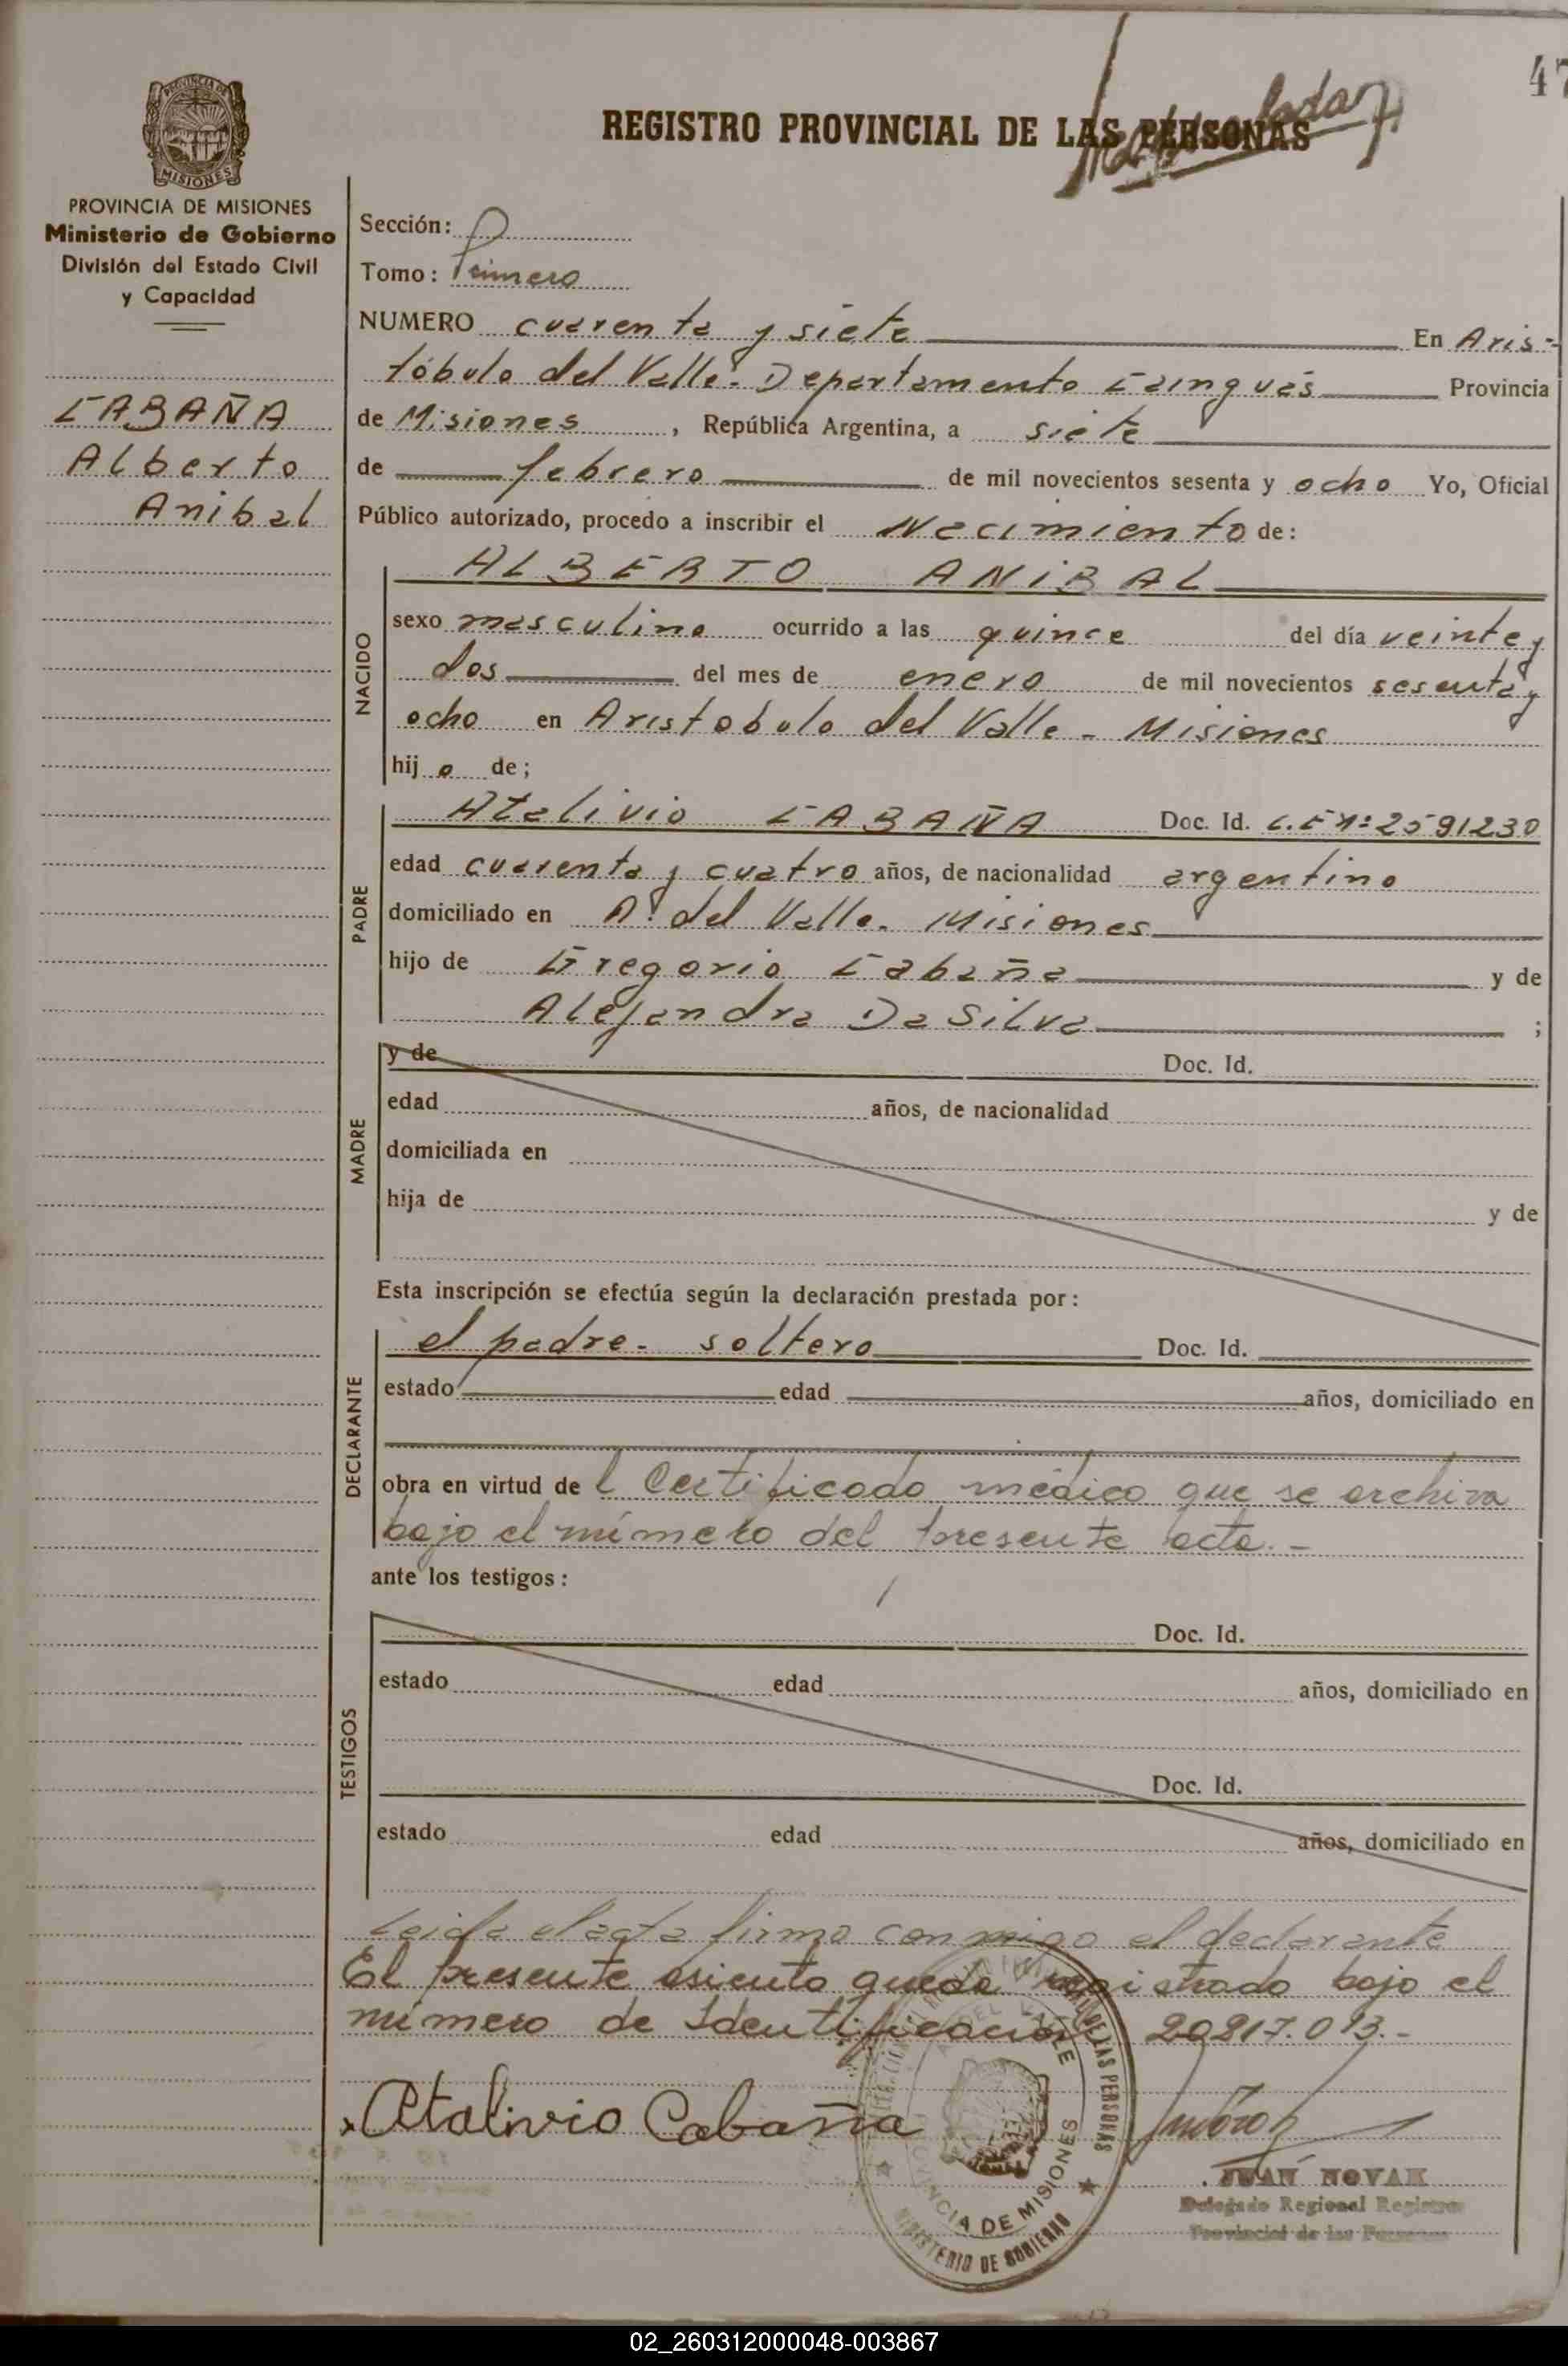 47
REGISTRO PROVINCIAL DE LAS PERSONAS
PROVINCIA DE MISIONES
Ministerio de Gobierno
División del Estado Civil
y Capacidad
CABAÑA
Alberto
Anibal
Sección:
Tomo: Primero
NUMERO cuarenta y siete En Aris-
tóbulo del Valle. Departamento Cainguás Provincia
de Misiones, República Argentina, a siete
de febrero de mil novecientos sesenta y ocho Yo, Oficial
Público autorizado, procedo a inscribir el Nacimiento de:
ALBERTO ANIBAL
NACIDO
sexo masculino ocurrido a las quince del día veinte y
dos del mes de enero de mil novecientos sesenta y
ocho en Aristobulo del Valle - Misiones
hij o de;
PADRE
Atalivio CABAÑA Doc. Id. C.E Nº 2591230
edad cuarenta y cuatro años, de nacionalidad argentino
domiciliado en A. del Valle. Misiones
hijo de Gregorio Cabaña y de
Alejandra Da Silva ;
MADRE
y de Doc. Id.
edad años, de nacionalidad
domiciliada en
hija de y de
Esta inscripción se efectúa según la declaración prestada por:
DECLARANTE
el padre - soltero Doc. Id.
estado edad años, domiciliado en
obra en virtud de l Certificado médico que se archiva
bajo el número del presente acta.-
ante los testigos:
TESTIGOS
Doc. Id.
estado edad años, domiciliado en
Doc. Id.
estado edad años, domiciliado en
Leida el acta firma conmigo el declarante
El presente asiento queda registrado bajo el
número de Identificación 20217.013.-
Atalivio Cabaña
PROVINCIA DE MISIONES
MINISTERIO DE GOBIERNO
JUAN NOVAK
Delegado Regional Registro
Provincial de las Personas
02_260312000048-003867